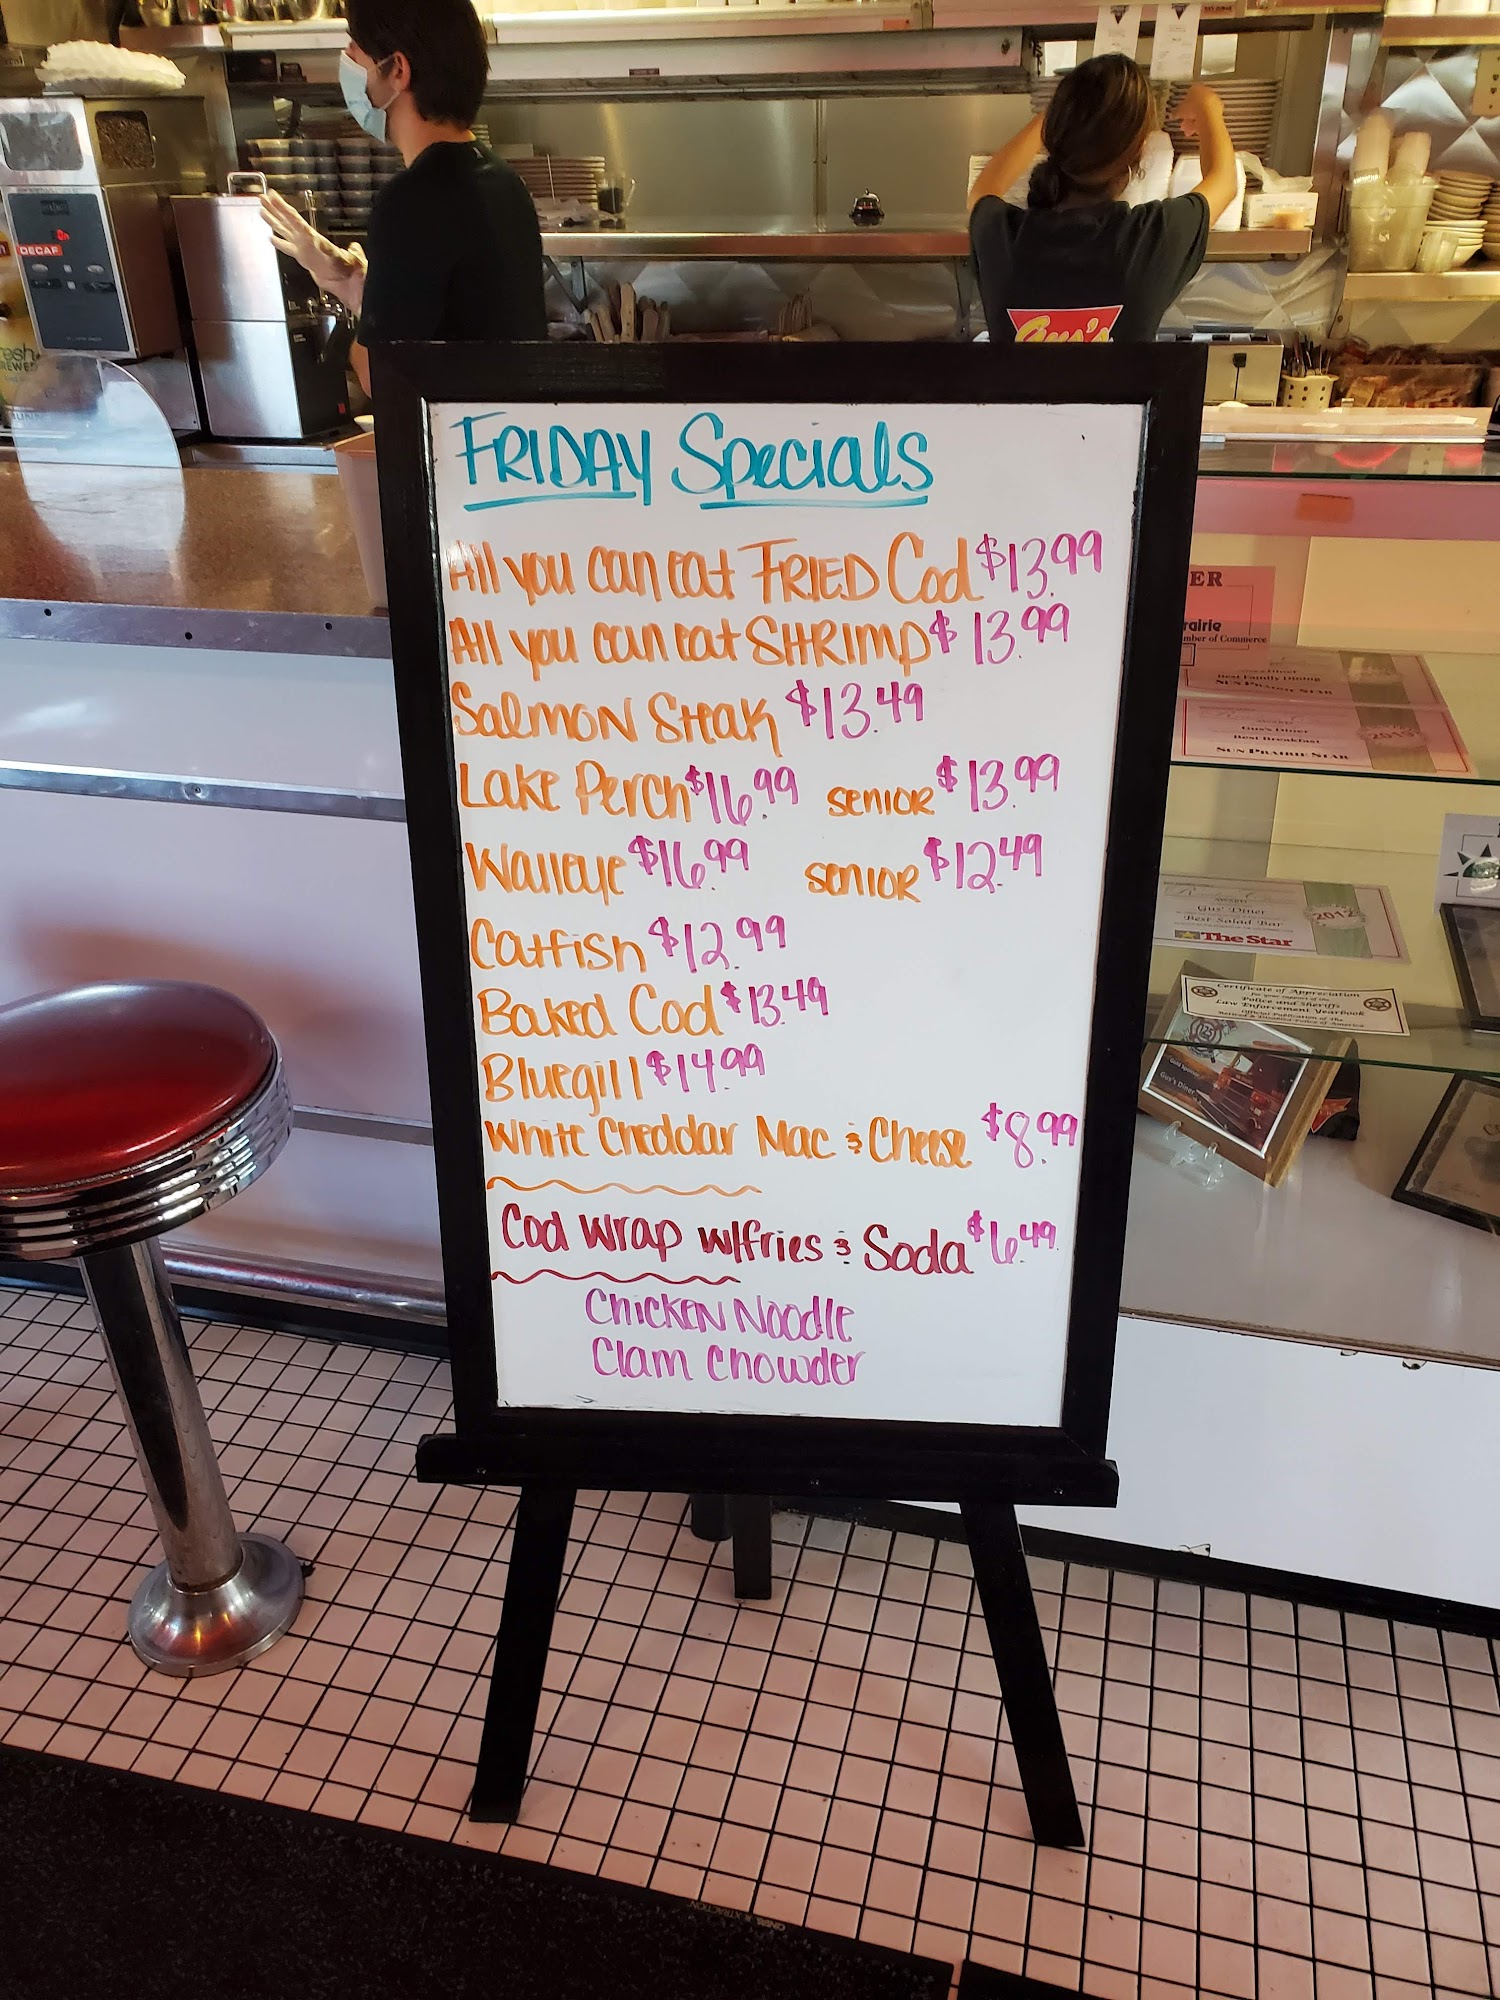 FRIDAY Specials
All you can eat FRIED Cod $13.99
All you can eat SHRIMP $13.99
Salmon Steak $13.49
Lake Perch $16.99 senior $13.99
Walleye $16.99 senior $12.49
Catfish $12.99
Baked Cod $13.49
Bluegill $14.99
White Cheddar Mac & Cheese $8.99
Cod wrap w/fries & Soda $6.49
Chicken Noodle
Clam Chowder
DECAF
Gus's
Best Family Dining
SUN PRAIRIE STAR
Gus's Diner
Best Breakfast
SUN PRAIRIE STAR
AWARD
Gus' Diner
Best Salad Bar
2012
The Star
Certificate of Appreciation
For your support of the
Police and Sheriffs
Law Enforcement Yearbook
Official Publication of the
Gus's Diner